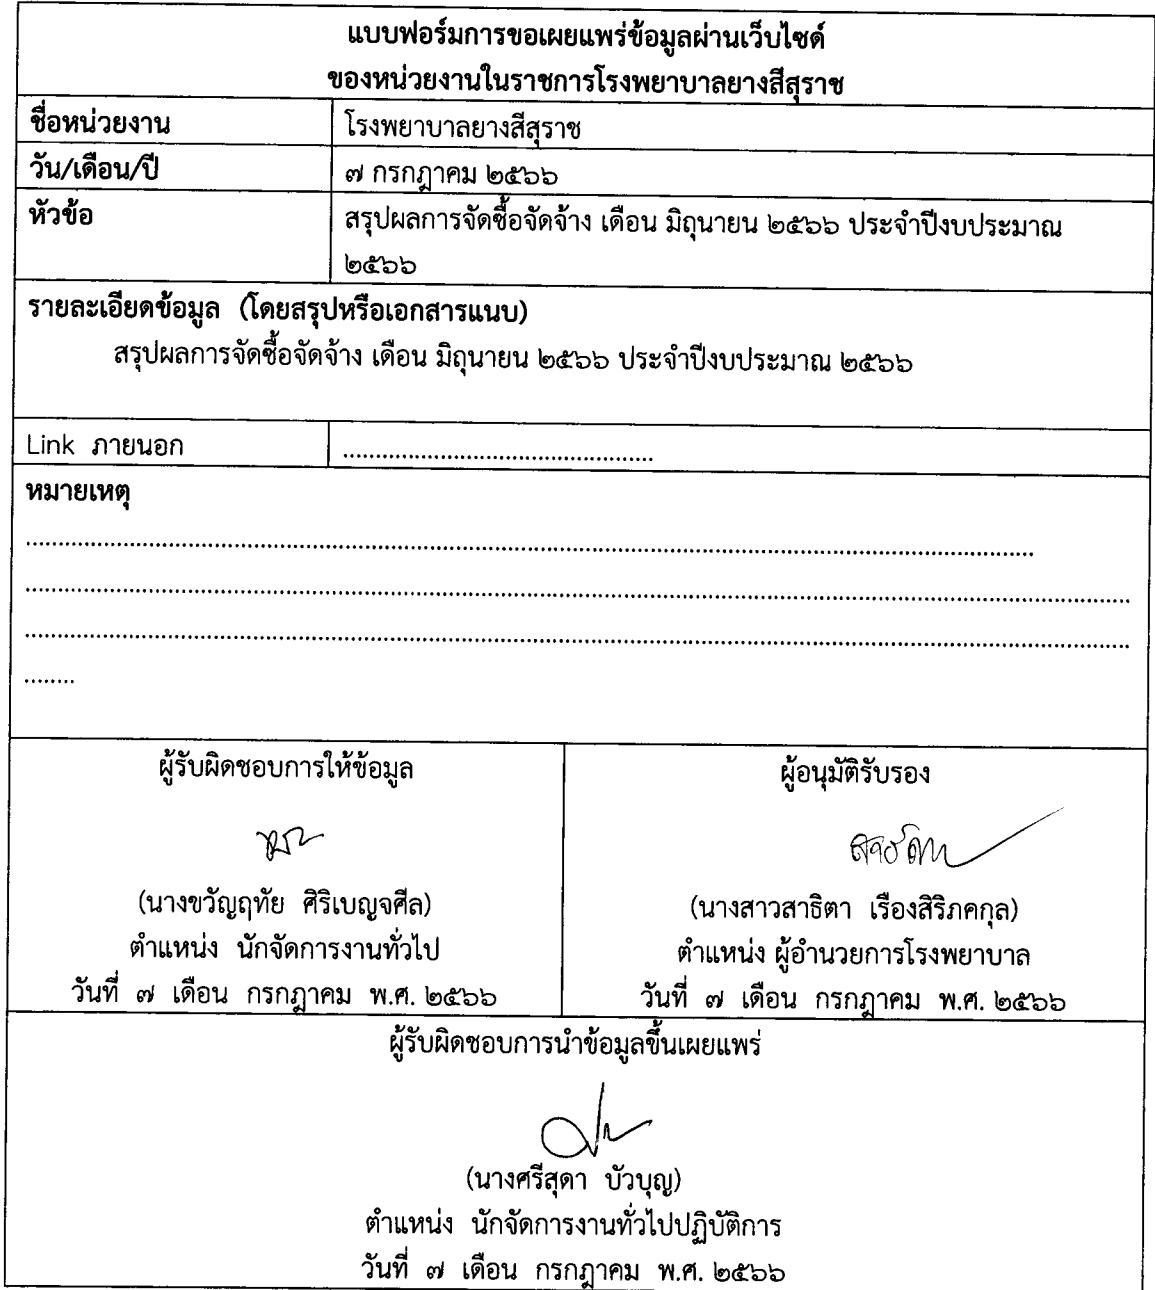 แบบฟอร์มการขอเผยแพร่ข้อมูลผ่านเว็บไซต์
ของหน่วยงานในราชการโรงพยาบาลยางสีสุราช
ชื่อหน่วยงาน โรงพยาบาลยางสีสุราช
วัน/เดือน/ปี ๗ กรกฎาคม ๒๕๖๖
หัวข้อ สรุปผลการจัดซื้อจัดจ้าง เดือน มิถุนายน ๒๕๖๖ ประจำปีงบประมาณ
๒๕๖๖
รายละเอียดข้อมูล (โดยสรุปหรือเอกสารแนบ)
สรุปผลการจัดซื้อจัดจ้าง เดือน มิถุนายน ๒๕๖๖ ประจำปีงบประมาณ ๒๕๖๖
Link ภายนอก ................................................
หมายเหตุ
ผู้รับผิดชอบการให้ข้อมูล ผู้อนุมัติรับรอง
(นางขวัญฤทัย ศิริเบญจศีล) (นางสาวสาธิตา เรืองสิริภคกุล)
ตำแหน่ง นักจัดการงานทั่วไป ตำแหน่ง ผู้อำนวยการโรงพยาบาล
วันที่ ๗ เดือน กรกฎาคม พ.ศ. ๒๕๖๖ วันที่ ๗ เดือน กรกฎาคม พ.ศ. ๒๕๖๖
ผู้รับผิดชอบการนำข้อมูลขึ้นเผยแพร่
(นางศรีสุดา บัวบุญ)
ตำแหน่ง นักจัดการงานทั่วไปปฏิบัติการ
วันที่ ๗ เดือน กรกฎาคม พ.ศ. ๒๕๖๖